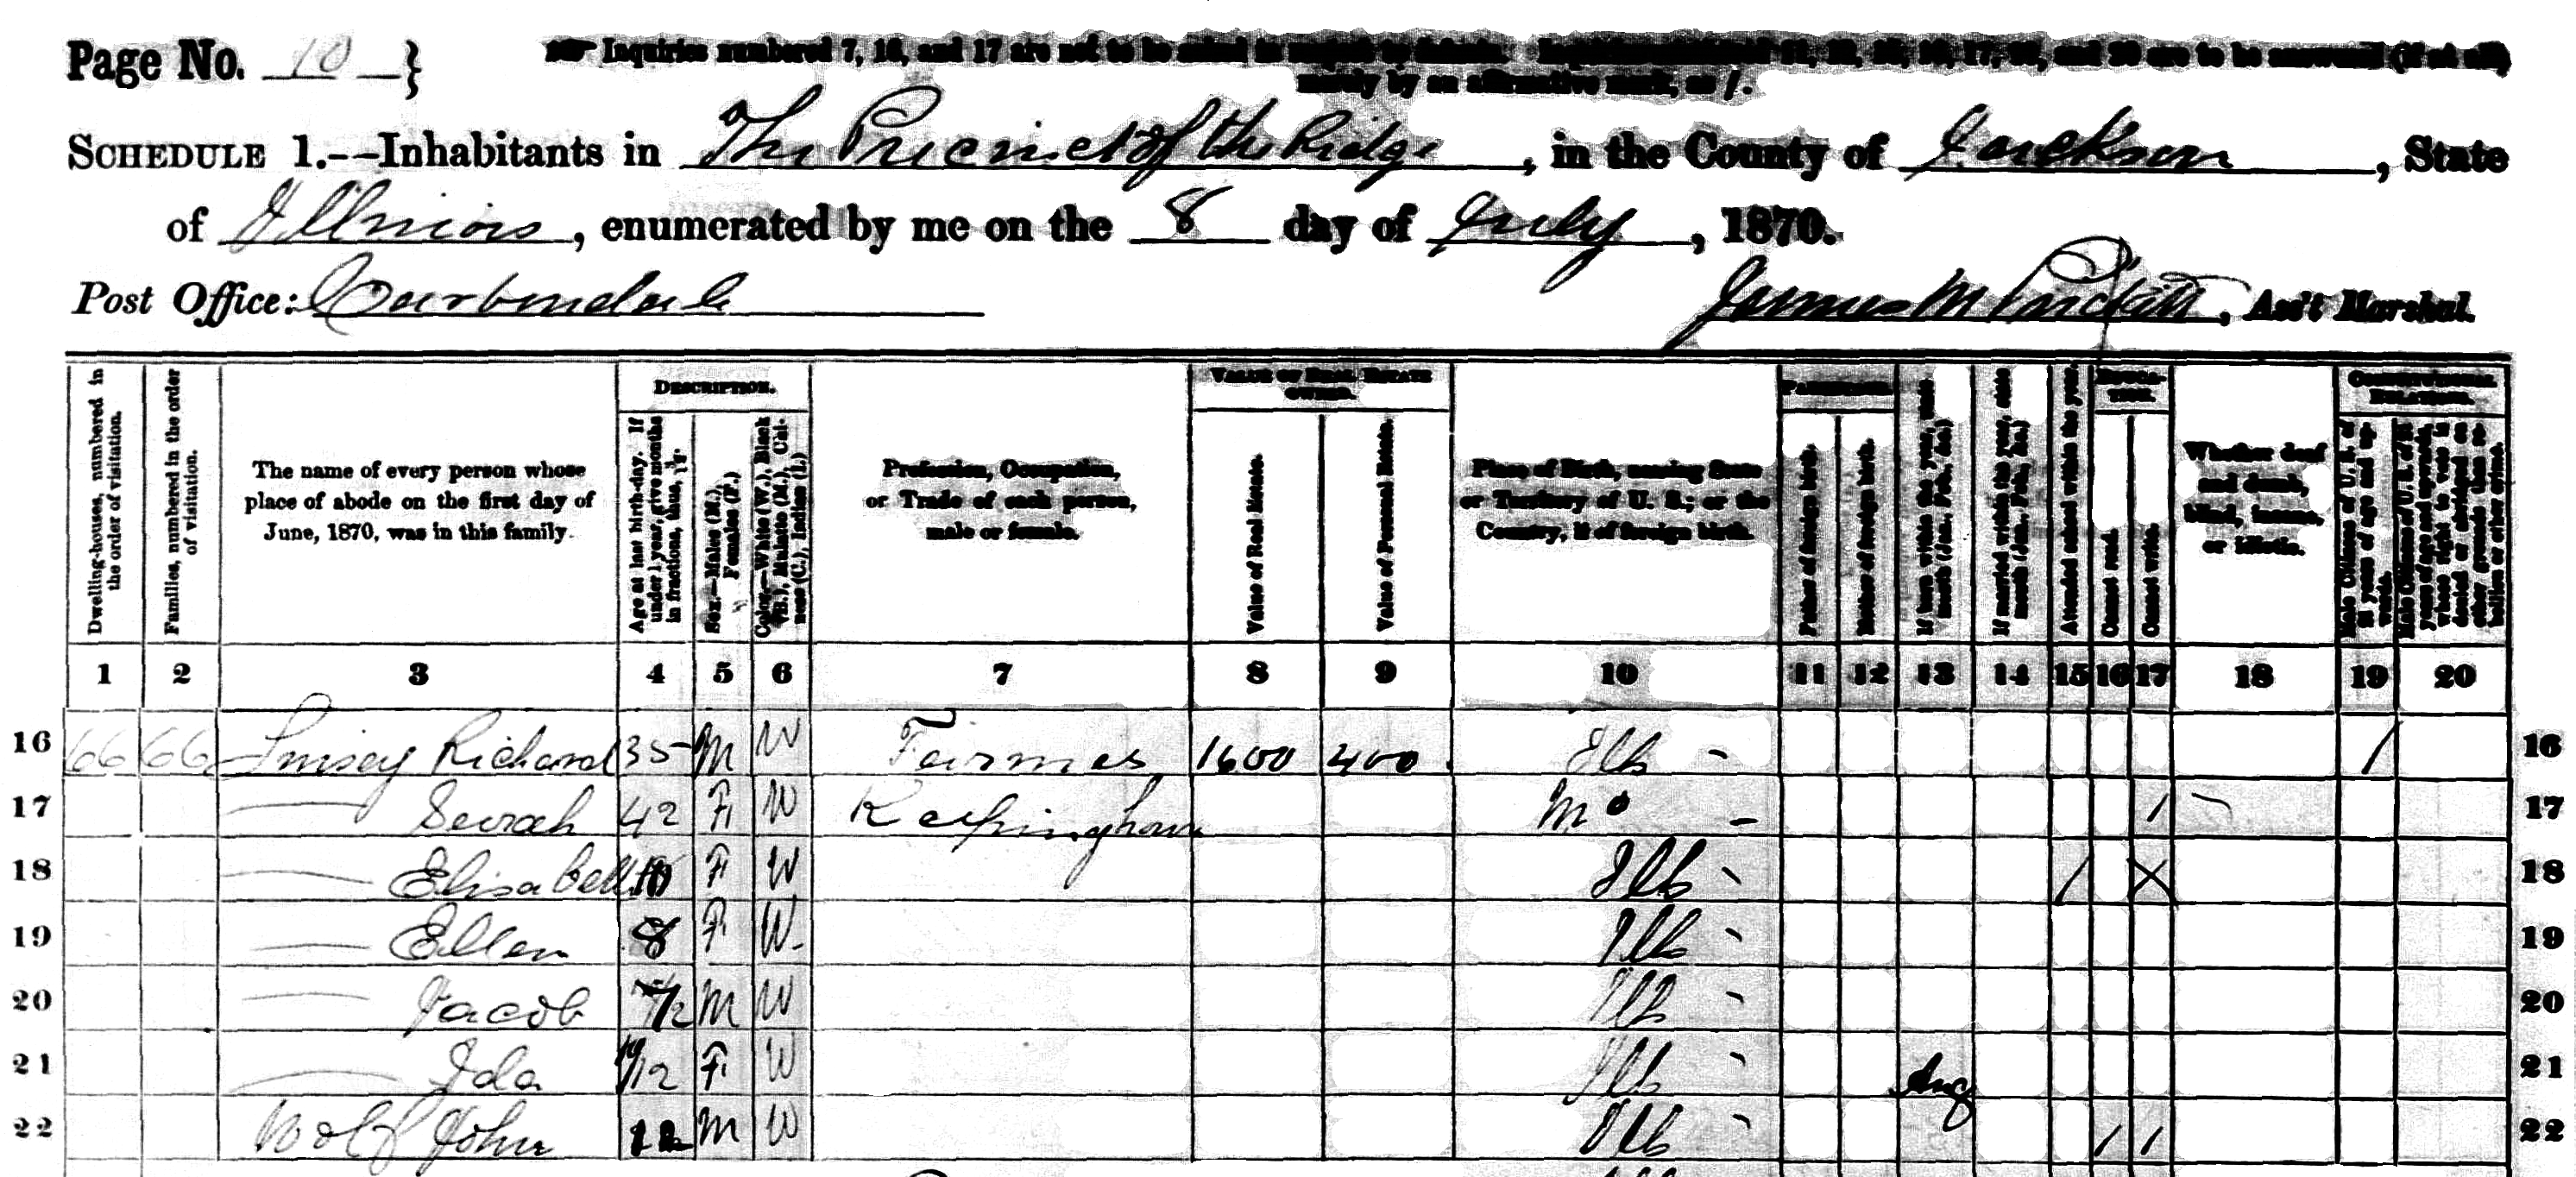 Page No. 10 }
Inquiries numbered 7, 16, and 17 are not to be asked in respect to infants. Inquiries numbered 11, 12, 15, 16, 17, 19, and 20 are to be answered (if at all)
merely by an affirmative mark, as /.
SCHEDULE 1.--Inhabitants in The Precinct of the Ridge, in the County of Jackson, State
of Illinois, enumerated by me on the 8 day of July, 1870.
Post Office: Carbondale James M , Ass't Marshal.
Dwelling-houses, numbered in the order of visitation.
Families, numbered in the order of visitation.
The name of every person whose place of abode on the first day of June, 1870, was in this family.
DESCRIPTION.
Age at last birth-day. If under 1 year, give months in fractions, thus, 3/12.
Sex.—Males (M.), Females (F.)
Color.—White (W.), Black (B.), Mulatto (M.), Chinese (C.), Indian (I.)
Profession, Occupation, or Trade of each person, male or female.
VALUE OF REAL ESTATE OWNED.
Value of Real Estate.
Value of Personal Estate.
Place of Birth, naming State or Territory of U. S.; or the Country, if of foreign birth.
PARENTAGE.
Father of foreign birth.
Mother of foreign birth.
If born within the year, state month (Jan., Feb., &c.)
If married within the year, state month (Jan., Feb., &c.)
Attended school within the year.
EDUCATION.
Cannot read.
Cannot write.
Whether deaf and dumb, blind, insane, or idiotic.
CONSTITUTIONAL RELATIONS.
Male Citizens of U. S. of 21 years of age and upwards.
Male Citizens of U. S. of 21 years of age and upwards, whose right to vote is denied or abridged on other grounds than rebellion or other crime.
1 2 3 4 5 6 7 8 9 10 11 12 13 14 15 16 17 18 19 20
16 66 66 Linsey Richard 35 M W Farmer 1600 400 Ills / 16
17 — Sarah 42 F W Keeping hous Mo / 17
18 — Elisabeth 10 F W Ills / X 18
19 — Ellen 8 F W Ills 19
20 — Jacob M W Ills 20
21 — Ida F W Ills Aug 21
22 Wolf John 12 M W Ills / / 22